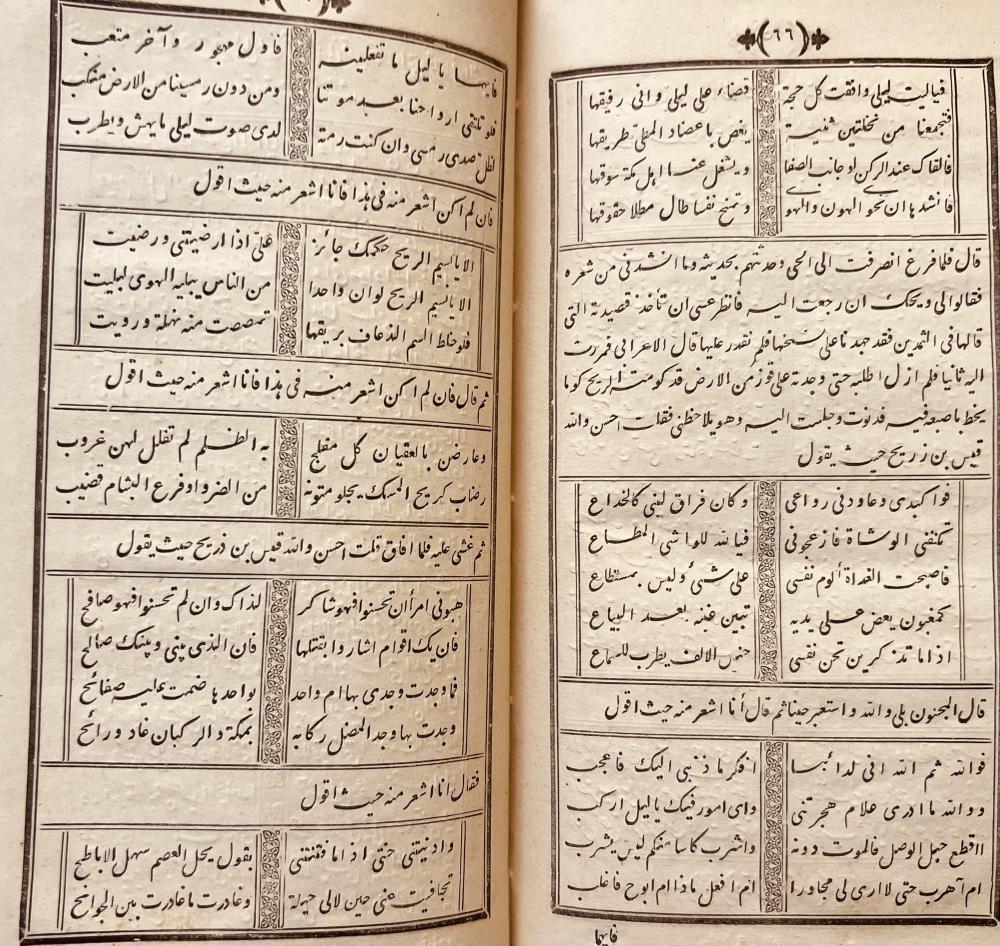 (٦٦)
فياليت ليلى وافقت كل حجة قضاء على ليلى وانى رفيقها
فتجمعنا من نخلتين ثنية يغص باعضاد المطى طريقها
فالقاك عند الركن او جانب الصفا ويشغل عنا اهل مكة سوقها
فانشدها ان نحو الهون والهو وتمنح نفسا طال مطلا حقوقها
قال فلما فرغ انصرفت الى الحى وحدثتهم بحديثه وما انشدنى من شعره
فقالوا لى ويحك ان رجعت اليه فانظر عسى ان تأخذ قصيدته التى
قالها فى الثمدين فقد جهدنا على نسخها فلم نقدر عليها قال الاعرابى فمررت
اليه ثانيا فلم ازل اطلبه حتى وجدته على قوز من الارض قد كومته الريح كوما
يخط باصبعه فيه فدنوت وجلست اليه وهو يلاحظنى فقلت احسن والله
قيس بن زريح حيث يقول
فواكبدى وعاودنى رواعى وكان فراق لبنى كالخداع
تكنفنى الوشاة فازعجونى فيا لله للواشى المطاع
فاصبحت الغداة ألوم نفسى على شئ وليس بمستطاع
كمغبون يعض على يديه تبين غبنه بعد البياع
اذا ما تذكرين تحن نفسى حنين الالف يطرب للسماع
قال المجنون بلى والله واستعبر حينا ثم قال أنا اشعر منه حيث اقول
فوالله ثم الله انى لدائبا افكر ما ذنبى اليك فاعجب
ووالله ما ادرى علام هجرتنى واى امور فيك يا ليل اركب
ااقطع حبل الوصل فالموت دونه واشرب كاسا منكم ليس يشرب
ام آهرب حتى لا ارى لى مجاورا ام افعل ماذا ام ابوح فاغلب
فايهما
فايهما يا ليل ما تفعلينه فاول مهجور وآخر متعب
فلو تلتقى ارواحنا بعد موتنا ومن دون رمسينا من الارض منكب
لظل صدى رمسى وان كنت رمة لدى صوت ليلى يهش ويطرب
فان لم اكن اشعر منه فى هذا فانا اشعر منه حيث اقول
الا يا نسيم الريح حكمك جائز علىّ اذا ارضيتنى ورضيت
الا يا نسيم الريح لو ان واحدا من الناس يبليه الهوى لبليت
فلو خلط السم الذعاف بريقها تمصصت منه نهلة ورويت
ثم قال فان لم اكن اشعر منه فى هذا فانا اشعر منه حيث اقول
وعارضن بالعقيان كل مفلج به الظلم لم تفلل لهن غروب
رضاب كريح المسك يجلو متونه من الضرو او فرع البشام قضيب
ثم غشى عليه فلما افاق قلت احسن والله قيس بن ذريح حيث يقول
هبونى امرأ ان تحسنوا فهو شاكر لذاك وان لم تحسنوا فهو صافح
فان يك اقوام اشاروا بقتلها فان الذى بينى وبينك صالح
فما وجدت وجدى بها ام واحد بواحدها ضمت عليه صفائح
وجدت بها وجد المضل ركابه بمكة والركبان غاد ورائح
فقال انا اشعر منه حيث اقول
وادنيتنى حتى اذا ما فتنتنى بقول يحل العصم سهل الاباطح
تجافيت عنى حين لا لى حيلة وغادرت ما غادرت بين الجوانح